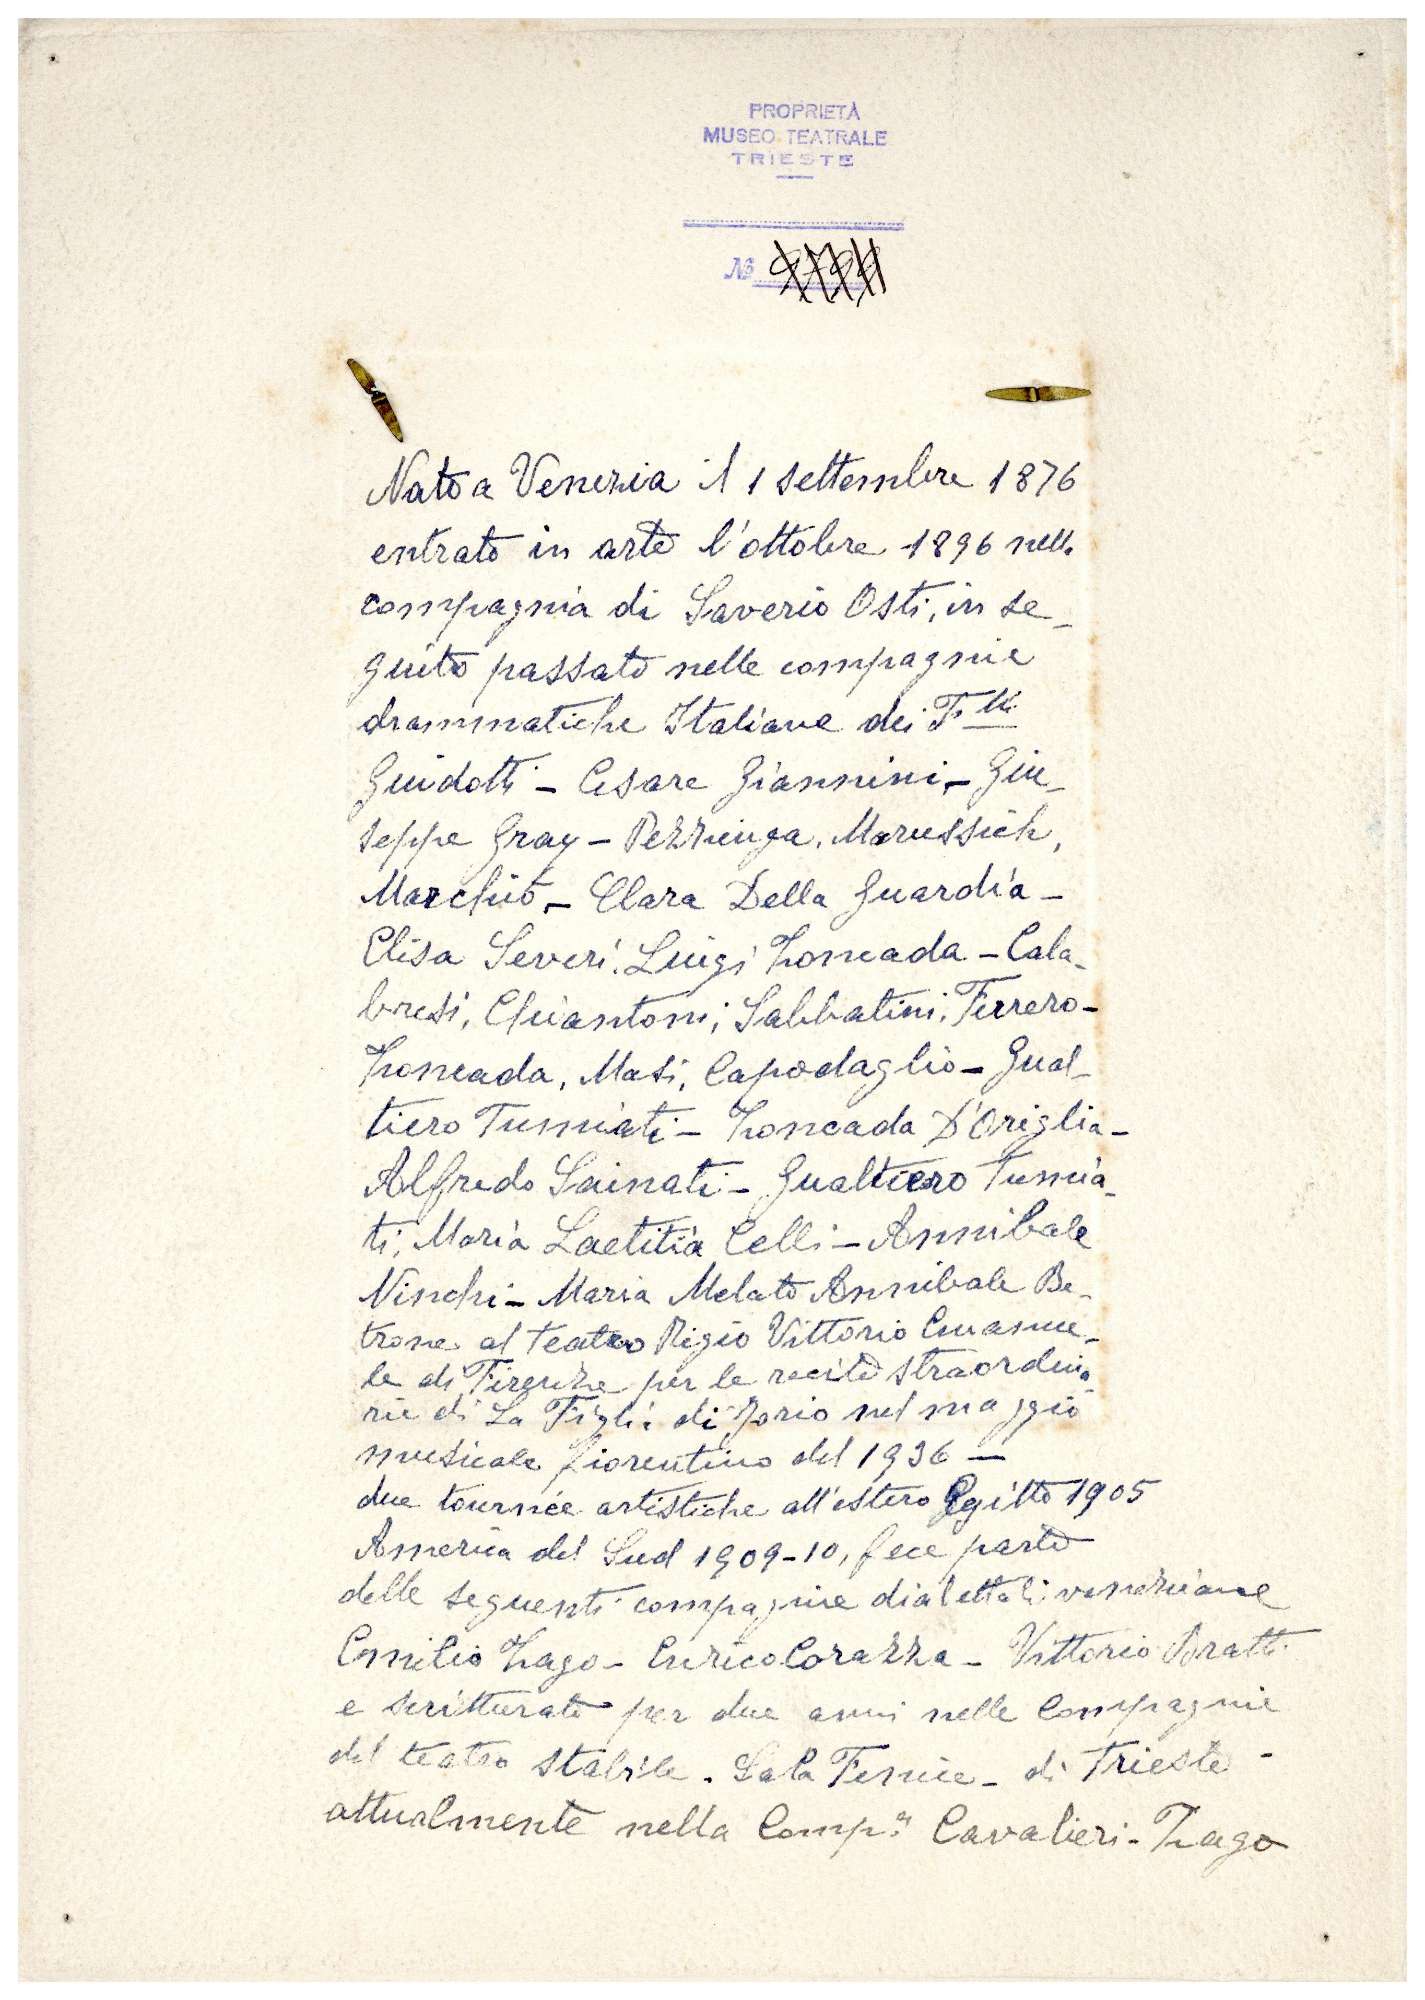 PROPRIETÀ
MUSEO TEATRALE
TRIESTE
№
Nato a Venezia il 1 settembre 1876
entrato in arte l'ottobre 1896 nelle
compagnia di Saverio Osti, in se_
guito passato nelle compagnie
drammatiche Italiane dei F.lli
Guidotti – Cesare Giannini – Giu_
seppe Gray – Pezzinga, Marussich,
Marchiò – Clara Della Guardia –
Elisa Severi, Luigi Zoncada – Cala_
bresi, Chiantoni, Sabbatini, Ferrero –
Zoncada, Masi, Capodaglio – Gual_
tiero Tumiati – Zoncada D'Origlia –
Alfredo Sainati – Gualtiero Tumia_
ti, Maria Laetitia Celli – Annibale
Ninchi – Maria Melato Annibale Be_
trone al teatro Regio Vittorio Emanue_
le di Firenze per le recite straordina
rie di La Figlia di Jorio nel maggio
musicale fiorentino del 1936 —
due tournée artistiche all'estero Egitto 1905
America del Sud 1909-10, fece parte
delle seguenti compagnie dialettali veneziane
Emilio Zago – Enrico Corazza – Vittorio Bratti
e scritturato per due anni nelle Compagnie
del teatro stabile. Sala Fenice – di Trieste –
attualmente nella Comp.a Cavalieri – Zago